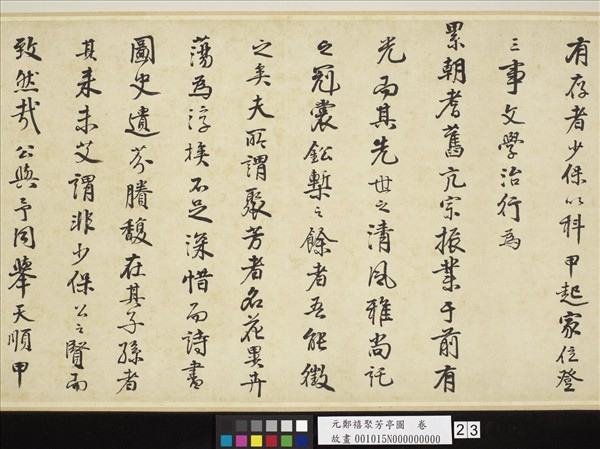 有存者少保以科甲起家位登
三事文學治行為
累朝耆舊亢宗振業于前有
光而其先世之清風雅尚託
之冠裳鈆槧之餘者吾能徵
之矣夫所謂聚芳者名花異卉
蕩為浮埃不足深惜而詩書
圖史遺芬賸馥在其子孫者
其来未艾謂非少保公之賢而
致然哉公與予同舉天順甲
元鄭禧聚芳亭圖　卷
故畫 001015N000000000
23